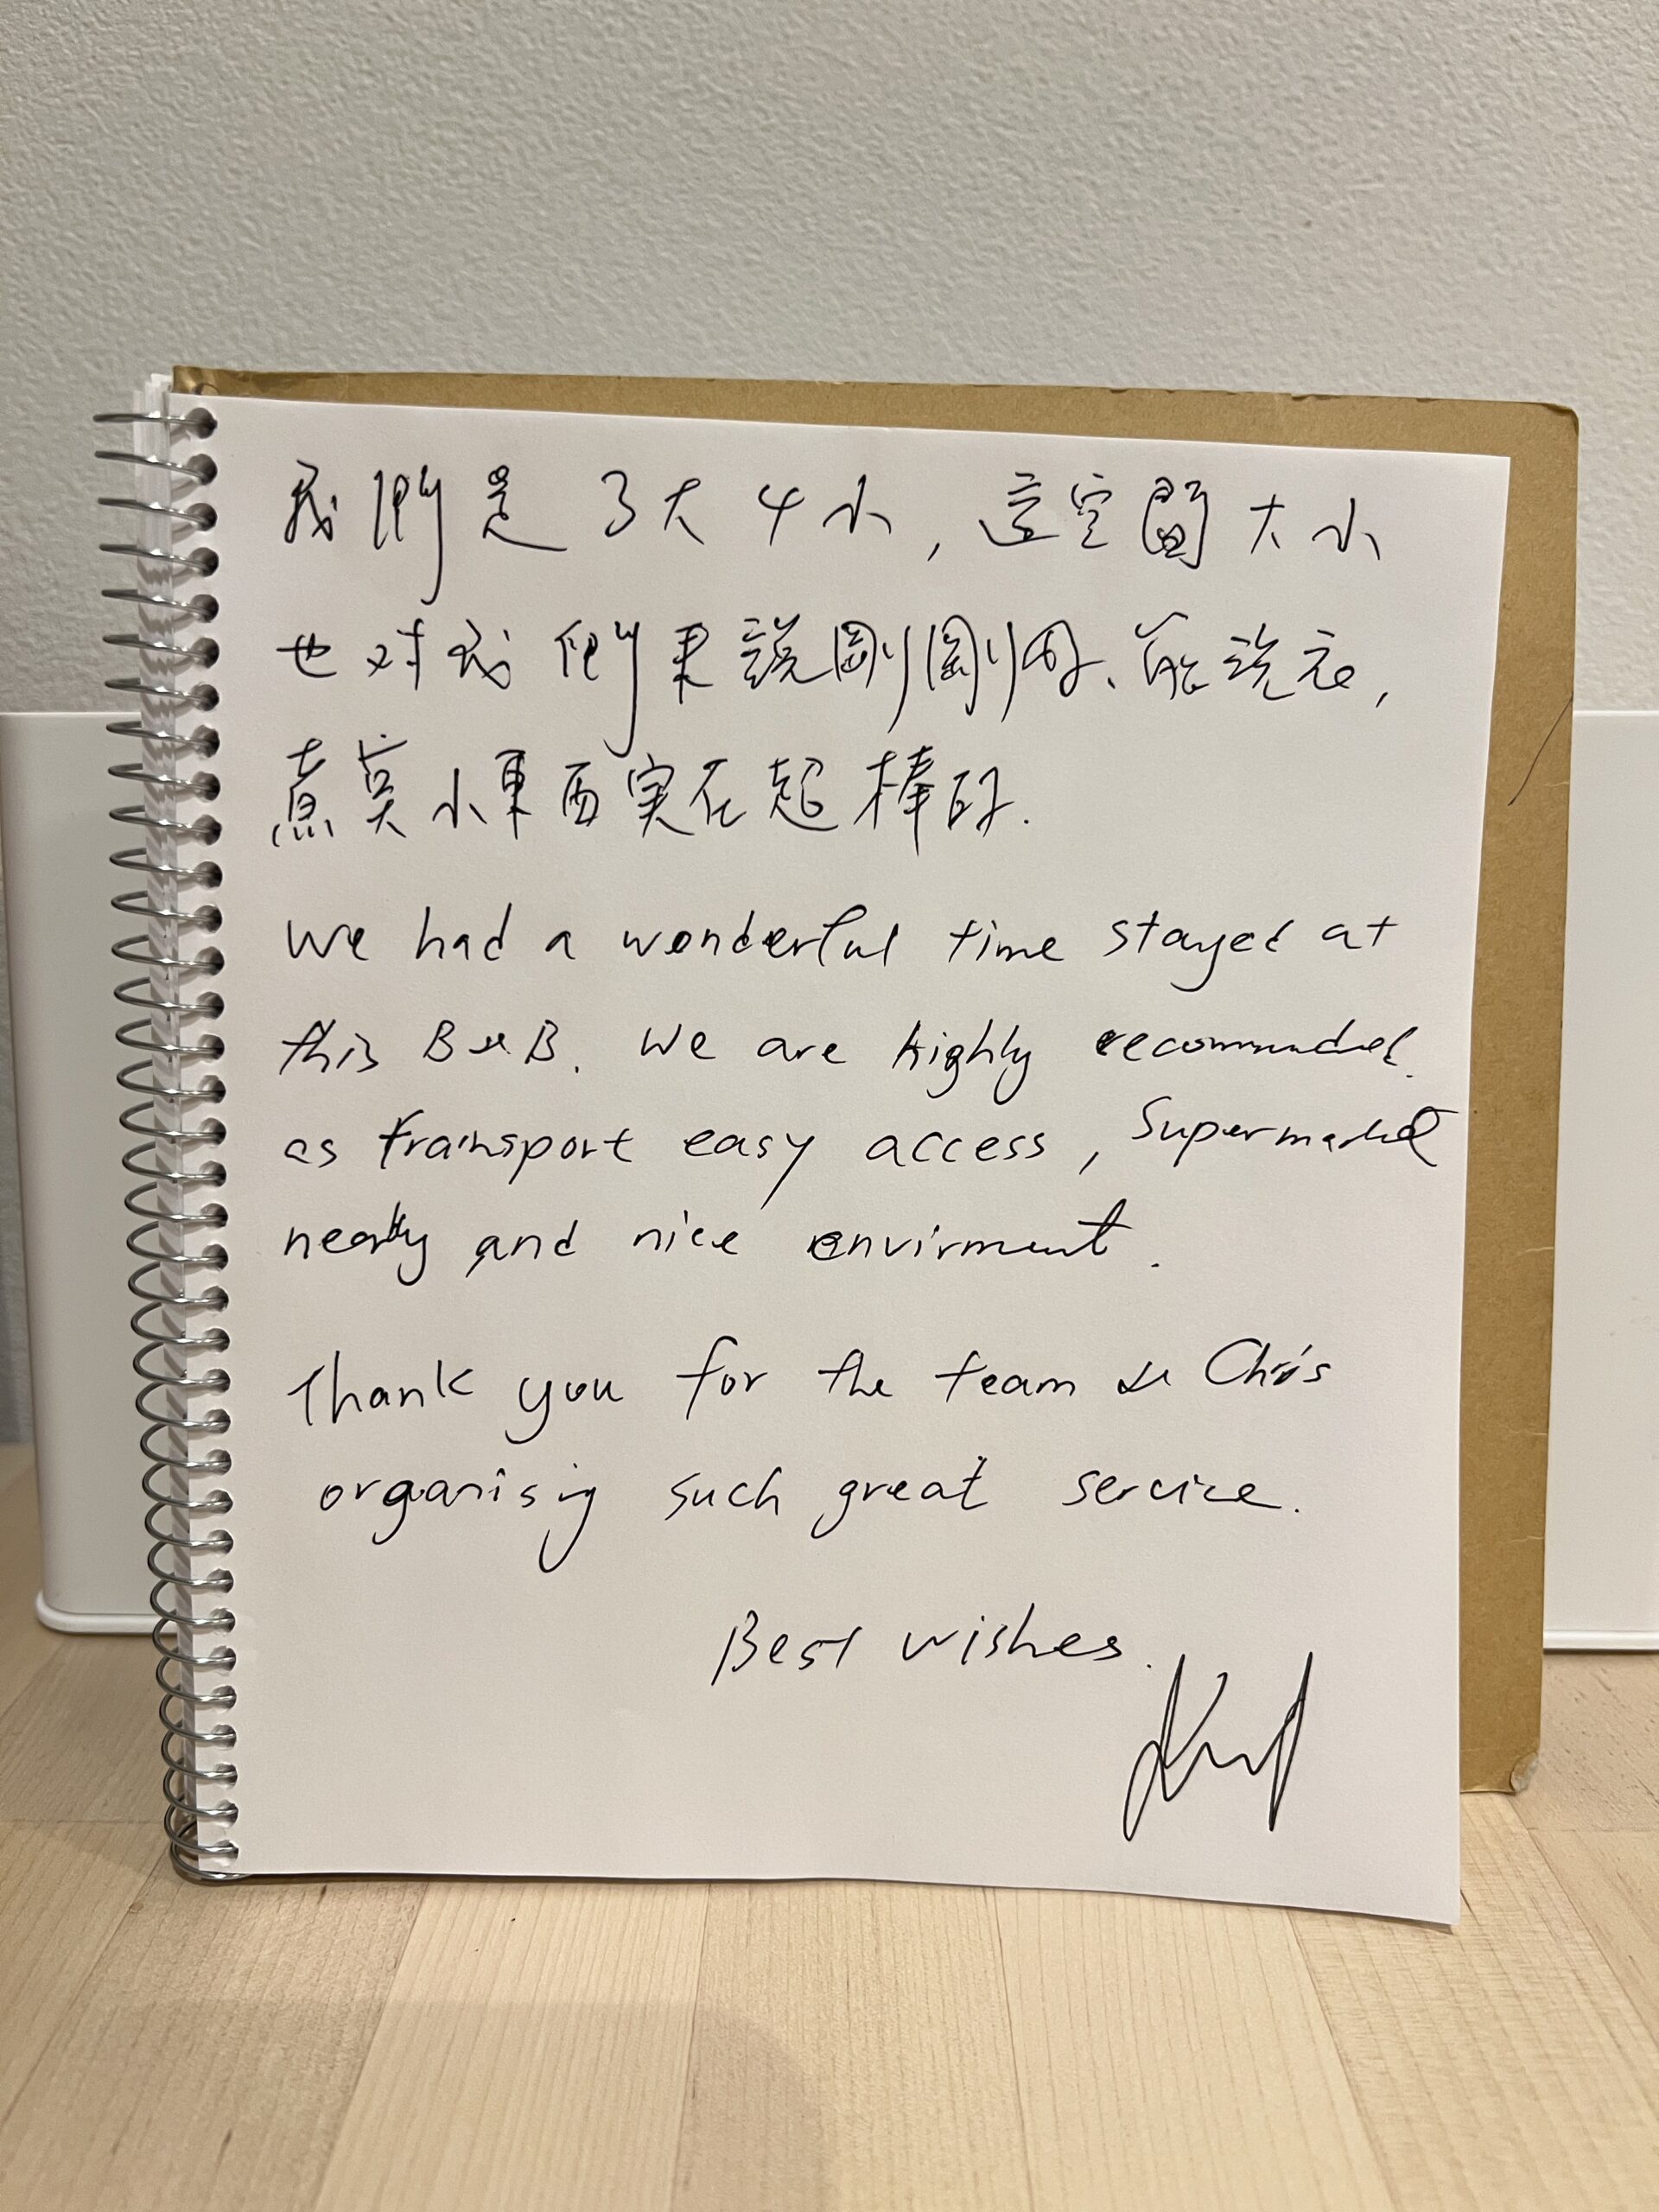 我們是3大4小,這空間大小
也对我們来說剛剛好、能洗衣,
煮莫小東西实在超棒的.
We had a wonderful time stayed at
this B & B. We are highly recommended.
as transport easy access, Supermarket
nearby and nice envirment.
Thank you for the team & Chris
organising such great service.
Best wishes.